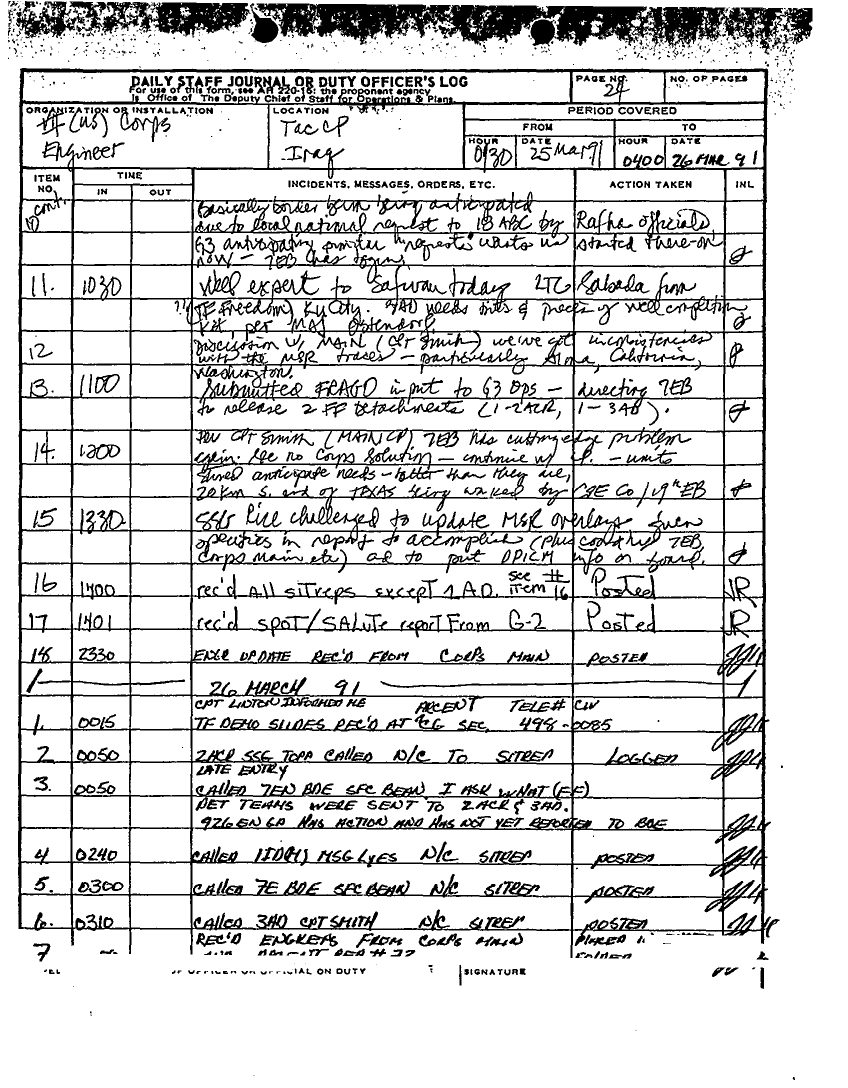 DAILY STAFF JOURNAL OR DUTY OFFICER'S LOG
For use of this form, see AR 220-15; the proponent agency
is Office of The Deputy Chief of Staff for Operations & Plans.
PAGE NO.
24
NO. OF PAGES
ORGANIZATION OR INSTALLATION
VII (US) Corps
Engineer
LOCATION
Tac CP
Iraq
PERIOD COVERED
FROM
TO
HOUR
0130
DATE
25 Mar 91
HOUR
0400
DATE
26 MAR 91
ITEM NO.
TIME
IN
OUT
INCIDENTS, MESSAGES, ORDERS, ETC.
ACTION TAKEN
INL
cont. Basically border berm being anticipated
due to local national request to 18 ABC by Rafha officials.
G3 anticipating similar requests wants us started there-on
now – 7EB has begun.
11. 1030 Well expert to Safwan today LTC Rabada from
(TF Freedom) Ku City. 3AD needs bits & pieces of well completion
kit, per MAJ Ostendorf.
12 Discussion w/ MAIN (CPT Smith) we've got inconsistencies
with the MSR traces – particularly Alma, California,
Washington.
13. 1100 Submitted FRAGO input to G3 OPS – directing 7EB
to release 2 FF Detachments (1-2ACR, 1-3AD).
14. 1200 Per CPT Smith (MAIN CP) 7EB has cutting edge problem
again. See no Corps Solution – continue w/ – units
need anticipate needs – better than they are,
20 km S. end of TEXAS being worked by CSE Co/19th EB
15 1330 SSG Rice challenged to update MSR overlays given
specifics in report to accomplish (plus coord thru 7EB
Corps Main etc) as to put DPICM info on board.
16 1400 rec'd All sitreps except 1 A.D. see item # 16 Posted JR
17 1401 rec'd spot/SALute report From G-2 Posted JR
18 2330 ENGR UPDATE REC'D FROM CORPS MAIN POSTED
26 MARCH 91
CPT LINTON INFORMED ME ARCENT TELE# CIV
1. 0015 TF DEMO SLIDES REC'D AT CG SEC. 498-0085
2 0050 2ACR SSG TOPA CALLED N/C TO SITREP LOGGED
LATE ENTRY
3. 0050 CALLED 7EN BDE SFC BEAN I ASK WHAT (FF)
DET TEAMS WERE SENT TO 2ACR & 3AD.
926 EN GP HAS ACTION AND HAS NOT YET REPORTED TO BDE
4 0240 CALLED 1ID(M) MSG LYES N/C SITREP POSTED
5. 0300 CALLED 7E BDE SFC BEAN N/C SITREP POSTED
6. 0310 CALLED 3AD CPT SMITH N/C SITREP POSTED
7 REC'D ENGREPS FROM CORPS MAIN PLACED
FOLDER
OFFICER OR OFFICIAL ON DUTY
SIGNATURE